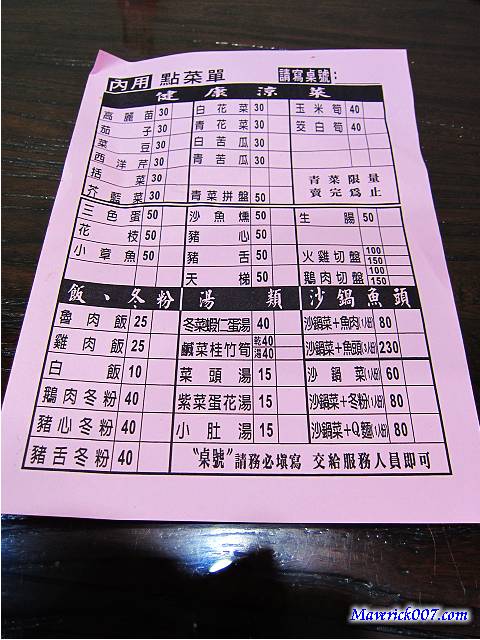 內用 點菜單 請寫桌號：
健康涼菜
高麗苗 30 白花菜 30 玉米筍 40
茄子 30 青花菜 30 茭白筍 40
菜豆 30 白苦瓜 30
西洋芹 30 青苦瓜 30
括菜 30 青菜限量
芥藍菜 30 青菜拼盤 50 賣完為止
三色蛋 50 沙魚燻 50 生腸 50
花枝 50 豬心 50
小章魚 50 豬舌 50 火雞切盤 100 150
天梯 50 鵝肉切盤 100 150
飯、冬粉 湯類 沙鍋魚頭
魯肉飯 25 冬菜蝦仁蛋湯 40 沙鍋菜+魚肉(1人份) 80
雞肉飯 25 鹹菜桂竹筍 乾40 湯40 沙鍋菜+魚頭(3人份) 230
白飯 10 菜頭湯 15 沙鍋菜(1人份) 60
鵝肉冬粉 40 紫菜蛋花湯 15 沙鍋菜+冬粉(1人份) 80
豬心冬粉 40 小肚湯 15 沙鍋菜+Q麵(1人份) 80
豬舌冬粉 40 "桌號"請務必填寫 交給服務人員即可
Maverick007.com